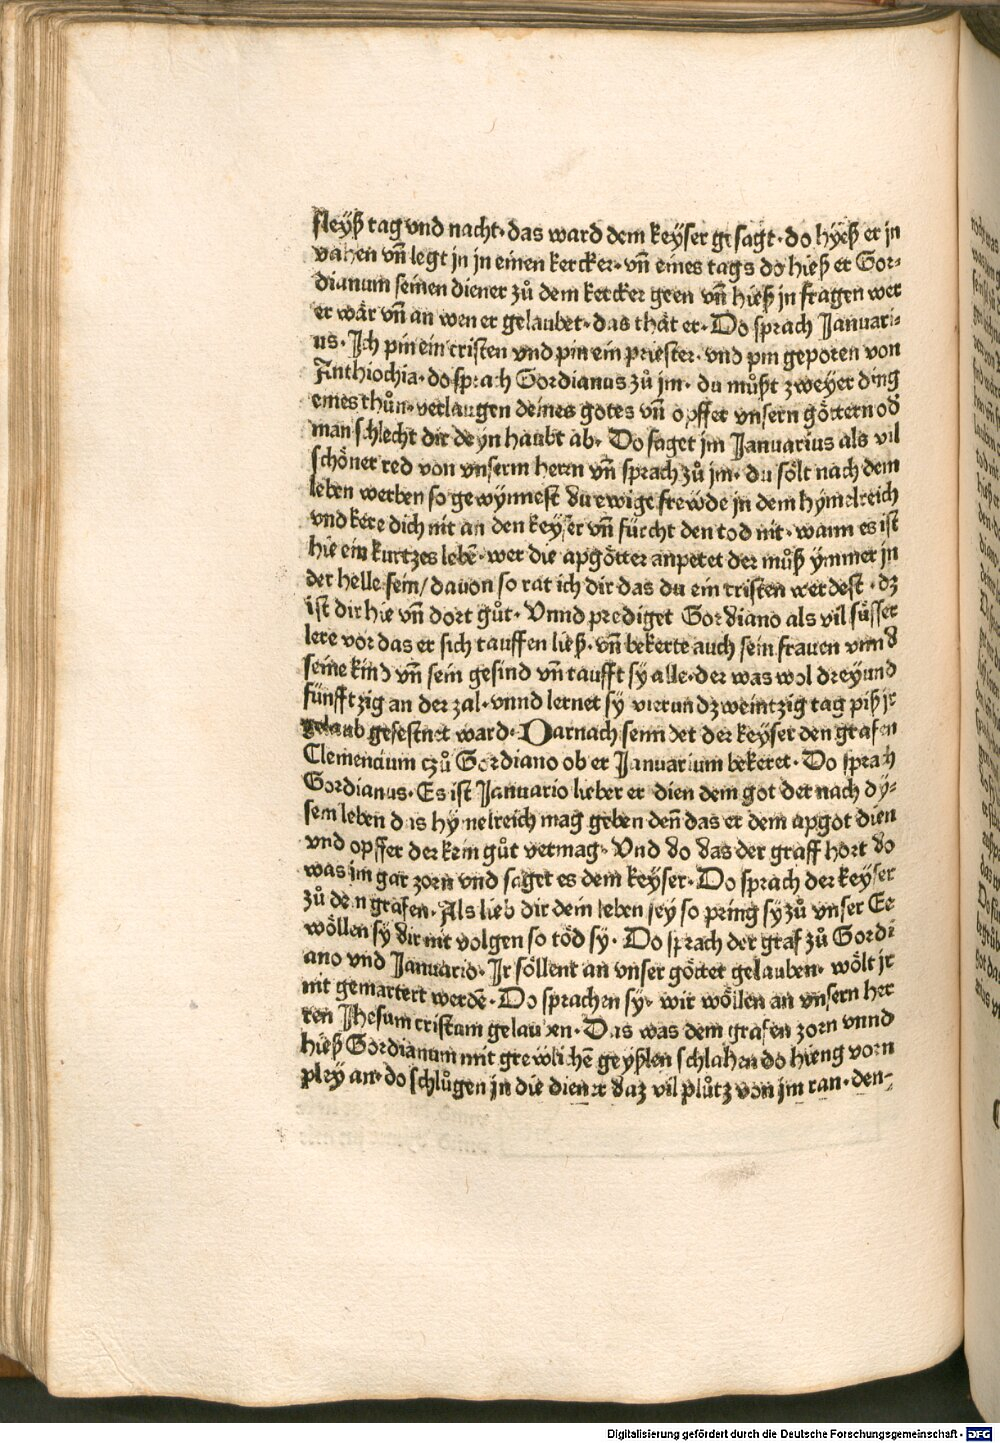 fleyß tag vnd nacht· das ward dem keyser gesagt· do hyeß er jn
vahen vñ legt jn in einen kercker· vñ eines tags do hieß er Gor⸗
dianum seinen diener zů dem kercker geen vñ hieß jn fragen wer
er wär vñ an wen er gelaubet· das thät er· Do sprach Januari⸗
us· Ich pin ein cristen vnd pin ein priester· vnd pin geporen von
Anthiochia· do sprach Gordianus zů jm· du můßt zweyer ding
eines thůn· verlaugen deines gotes vñ opffer vnsern göttern od
man schlecht dir deyn haubt ab· Do saget jm Januarius als vil
schöner red von vnserm herrn vñ sprach zů jm· du sölt nach dem
leben werben so gewynnest du ewige frewde in dem hymelreich
vnd kere dich nit an den keyser vñ fürcht den tod nit· wann es ist
hie ein kurtzes lebē· wer die apgötter anpetet der můß ymmer in
der helle sein/ dauon so rat ich dir das du ein cristen werdest· dz
ist dir hie vñ dort gůt· Vnnd prediget Gordiano als vil süsser
lere vor das er sich tauffen ließ· vñ bekerte auch sein frauen vnnd
seine kind vñ sein gesind vñ taufft sy alle· der was wol dreyund
fünfftzig an der zal· vnnd lernet sy vierundzweintzig tag piß jr
gelaub gefestnet ward· Darnach senndet der keyser den grafen
Clemencium czů Gordiano ob er Januarium bekeret· Do sprach
Gordianus· Es ist Januario lieber er dien dem got der nach dy⸗
sem leben das hymelreich mag geben deñ das er dem apgot dien
vnd opffer der kein gůt vermag· Vnd do das der graff hort do
was jm gar zorn vnd saget es dem keyser· Do sprach der keyser
zů dem grafen· Als lieb dir dein leben sey so pring sy zů vnser Ee
wöllen sy dir nit volgen so töd sy· Do sprach der graf zů Gordi
ano vnd Januario· Ir söllent an vnser götter gelauben· wölt jr
nit gemartert werdē· Do sprachen sy· wir wöllen an vnsern her
ren Jhesum cristum gelauben· Das was dem grafen zorn vnnd
hieß Gordianum mit grewlichē geyßlen schlahen do hieng vorn
pley an· do schlůgen jn die diener daz vil plůtz von jm ran· den⸗
Digitalisierung gefördert durch die Deutsche Forschungsgemeinschaft - DFG